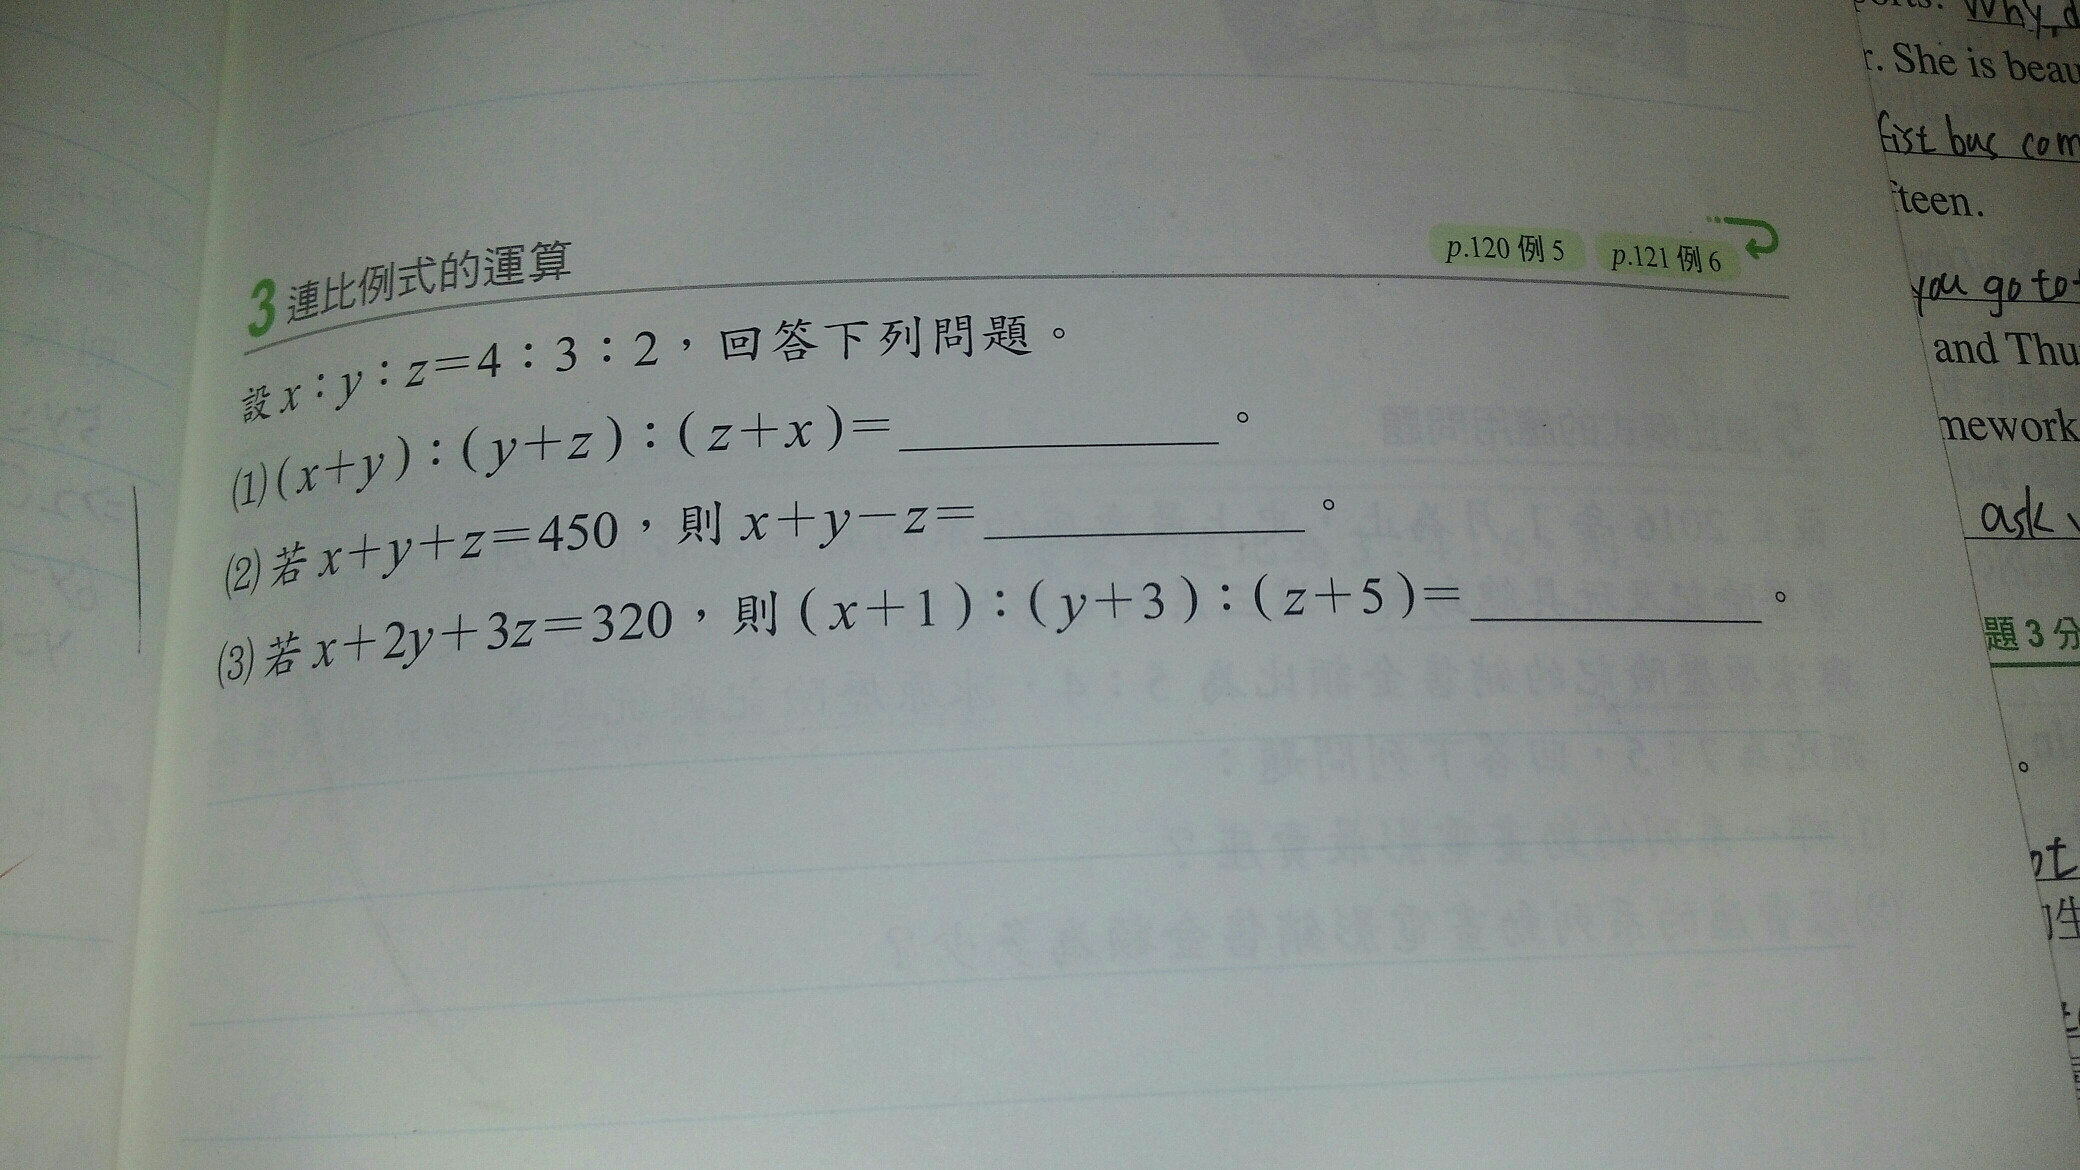 3 連比例式的運算
p.120 例 5 p.121 例 6
設 x：y：z＝4：3：2，回答下列問題。
(1) (x＋y)：(y＋z)：(z＋x)＝＿＿＿＿＿＿。
(2) 若 x＋y＋z＝450，則 x＋y－z＝＿＿＿＿＿＿。
(3) 若 x＋2y＋3z＝320，則 (x＋1)：(y＋3)：(z＋5)＝＿＿＿＿＿＿。
Why, d
r. She is beau
fist bus com
fteen.
you go to
and Thu
mework
ask
題 3 分